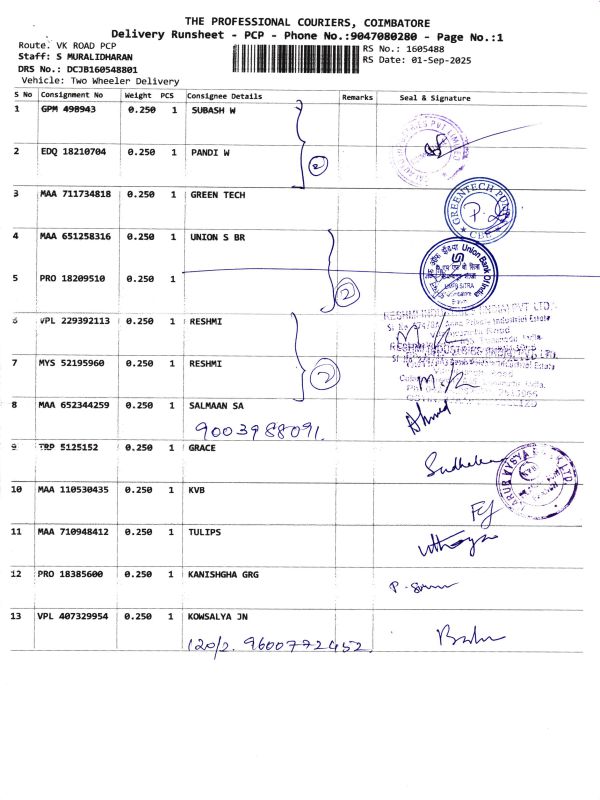 THE PROFESSIONAL COURIERS, COIMBATORE
Delivery Runsheet - PCP - Phone No.:9047080280 - Page No.:1
Route. VK ROAD PCP
RS No.: 1605488
Staff: S MURALIDHARAN
RS Date: 01-Sep-2025
DRS No.: DCJB160548801
Vehicle: Two Wheeler Delivery
S No Consignment No Weight PCS Consignee Details Remarks Seal & Signature
1 GPM 498943 0.250 1 SUBASH W
2 EDQ 18210704 0.250 1 PANDI W
2
3 MAA 711734818 0.250 1 GREEN TECH
GREENTECH
4 MAA 651258316 0.250 1 UNION S BR
Union Bank Of India
5 PRO 18209510 0.250 1
2
6 VPL 229392113 0.250 1 RESHMI
7 MYS 52195960 0.250 1 RESHMI
2
8 MAA 652344259 0.250 1 SALMAAN SA
9003988091.
Ahmed
9 TRP 5125152 0.250 1 GRACE
10 MAA 110530435 0.250 1 KVB
11 MAA 710948412 0.250 1 TULIPS
12 PRO 18385600 0.250 1 KANISHGHA GRG
13 VPL 407329954 0.250 1 KOWSALYA JN
120/2. 9600772452.